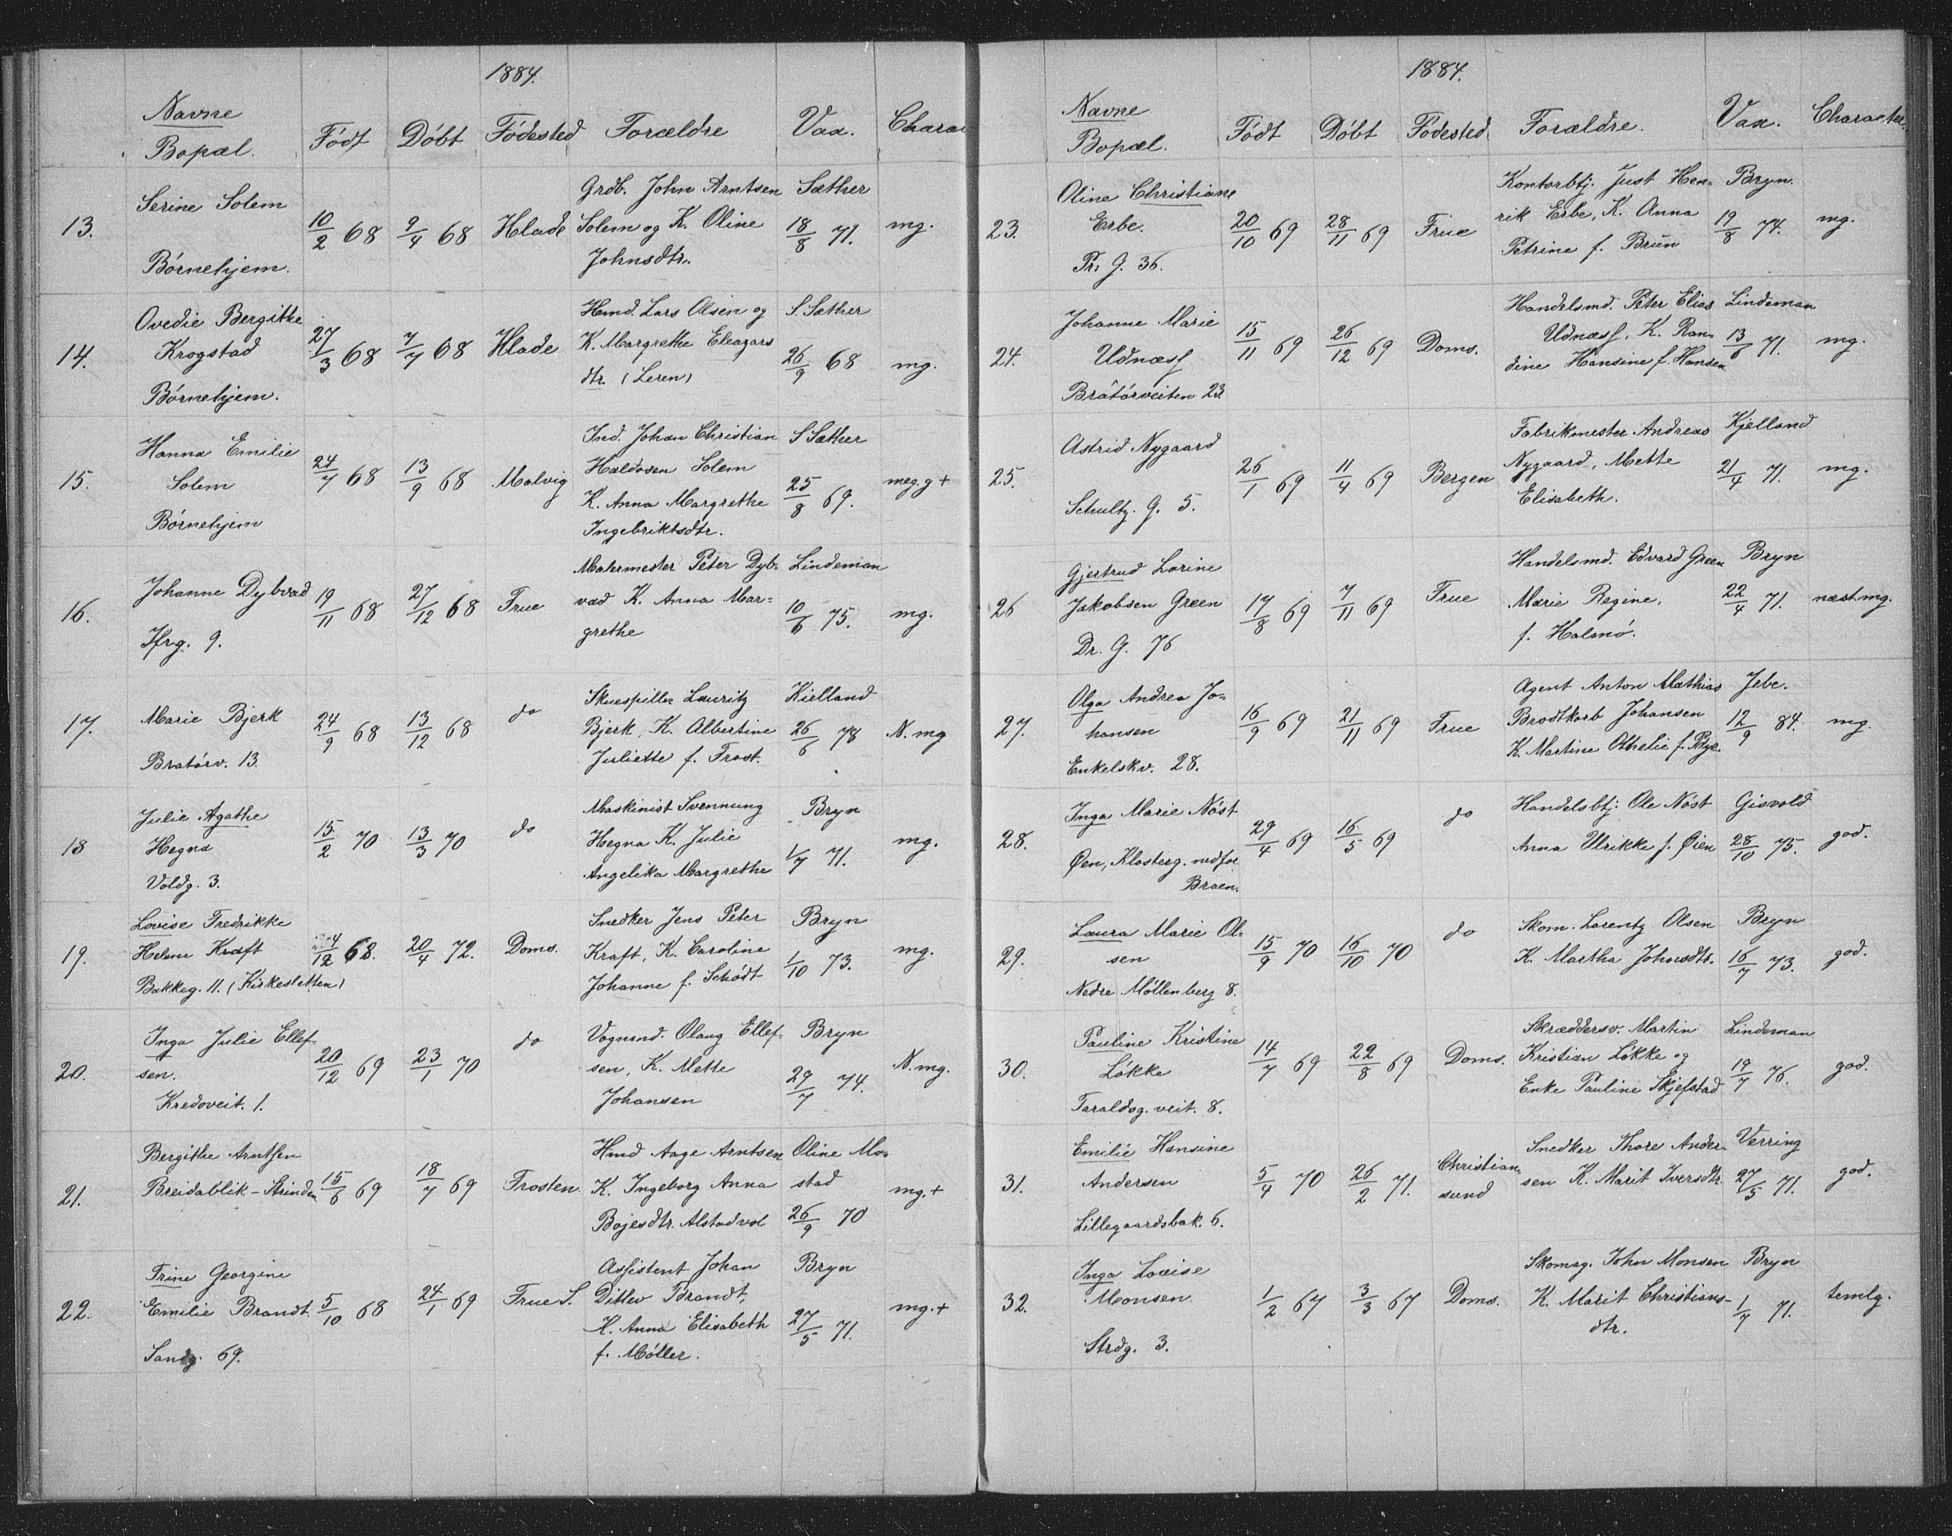 1884.
Navne
Bopæl.
Født
Døbt
Fødested
Forældre
Vax.
Charac
13.
Serine Solem
Børnehjem.
10/2 68
9/4 68
Hlade
Grdb. John Arntsen
Solem og K. Oline
Johnsdtr.
Sæther
18/8 71.
mg.
14.
Ovedie Bergitke
Krogstad
Børnehjem.
27/3 68
7/7 68
Hlade
Hmd. Lars Olsen og
K. Margrethe Eleazars
dtr. (Leren)
S. Sæther
26/9 68
mg.
15.
Hanna Emilie
Solem
Børnehjem
24/7 68
13/9 68
Malvig
Ind. Johan Christian
Haldosen Solem
K. Anna Margrethe
Ingebriktsdtr.
S Sæther
25/8 69.
meg. g +
16.
Johanne Dybvad
Ifrg. 9.
19/11 68
27/12 68
Frue
Malermester Peter Dyb-
vad K. Anna Mar-
grethe
Lindeman
10/6 75.
mg.
17.
Marie Bjerk
Bratørv. 13.
24/9 68
13/12 68
do
Skuespiller Lauritz
Bjerk, K. Albertine
Juliette f. Frost.
Kielland
26/6 78
N. mg
18
Julie Agathe
Hegna
Voldg. 3.
15/2 70
13/3 70
do
Maskinist Svennung
Hegna K. Julie
Angelika Margrethe
Bryn
1/7 71.
mg.
19.
Lovise Fredrikke
Helene Kraft
Bakkeg. 11. (Kirkesletten)
4/12 68.
20/4 72.
Doms.
Snedker Jens Peter
Kraft, K. Caroline
Johanne f. Schødt
Bryn
1/10 73.
mg.
20.
Inga Julie Ellef-
sen.
Kredoveit. 1.
20/12 69
23/1 70
do
Vognmd. Olaug Ellef-
sen, K. Mette
Johansen
Bryn
29/7 74.
N. mg.
21.
Bergithe Arntsen
Breidablik - Strinden
15/6 69
18/7 69
Frosten
Hmd Aage Arntsen
K. Ingeborg Anna
Bojesdtr. Alstadvol
Oline Mo-
stad
26/9 70
mg. +
22.
Trine Georgine
Emilie Brandt.
Sandg. 69.
5/10 68
24/1 69
Frue S.
Assistent Johan
Ditlev Brandt,
K. Anna Elisabeth
f. Møller.
Bryn
27/5 71.
mg. +
1884.
Navne
Bopæl.
Født
Døbt
Fødested.
Forældre.
Vax.
Character.
23.
Oline Christiane
Erbe.
Pr. G. 36.
20/10 69
28/11 69
Frue
Kontorbtj. Just Hen-
rik Erbe, K. Anna
Petrine f. Brün
Bryn.
19/8 74.
mg.
24.
Johanne Marie
Udnæss
Bratørveiten 23
15/11 69
26/12 69
Doms.
Handelsmd. Peter Elias
Udnæss, K. Ran-
dine Hansine f. Hansen
Lindeman
13/6 71.
mg.
25.
Astrid Nygaard
Schultz. G. 5.
26/1 69
11/4 69
Bergen
Fabrikmester Andreas
Nygaard, Mette
Elisabeth.
Kjelland
21/4 71.
mg.
26
Gjertrud Lorine
Jakobsen Green
Dr. G. 76
17/8 69
7/11 69
Frue
Handelsmd. Edvard Green
Marie Regine,
f. Holmø.
Bryn
22/4 71.
næst. mg.
27.
Olga Andrea Jo-
hansen
Enkelskv. 28.
16/9 69
21/11 69
Frue
Agent Anton Mathias
Brodtkorb Johansen
K. Martine Othelie f. Rye.
Jebe.
12/9 84.
mg.
28.
Inga Marie Nøst
Øen, Klosterg. nedfor
Broen.
29/4 69
16/5 69
do
Handelsbtj. Ole Nøst
Anna Ulrikke f. Øien
Gisvold
28/10 75.
god.
29.
Laura Marie Ol-
sen
Nedre Møllenberg 8.
15/9 70
16/10 70
do
Skom. Lorentz Olsen
K. Martha Johnsdtr.
Bryn
16/7 73.
god.
30.
Pauline Kristine
Løkke
Taraldsg. veit. 8.
14/7 69
22/8 69
Doms.
Skræddersv. Martin
Kristian Løkke og
Enke Pauline Skjefstad
Lindeman
19/7 76.
god.
31.
Emilie Hansine
Andersen
Lillegaardsbak. 6.
5/4 70
26/2 71.
Christian-
sund
Snedker Thore Ander-
sen K. Marit Iversdtr.
Verring
27/5 71.
god.
32.
Inga Lovise
Monsen
Strdg. 3.
1/2 67
3/3 67
Doms.
Skomag. John Monsen
K. Marit Christians-
dtr.
Bryn
1/7 71.
temlg.